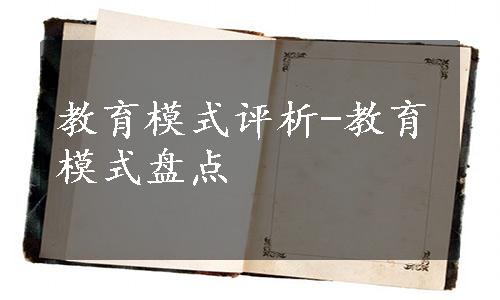 教育模式评析-教育
模式盘点